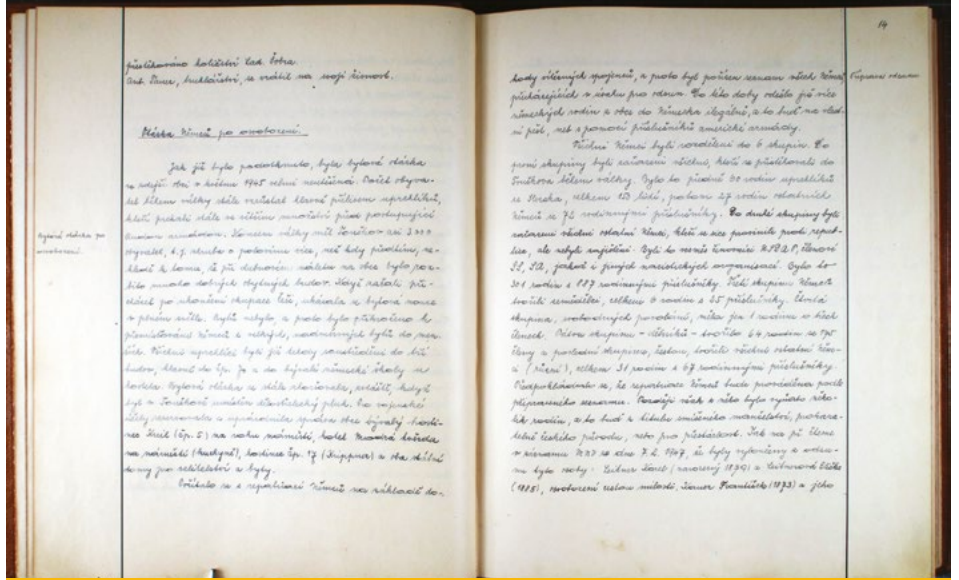 přestěhováno holičství Lad. Šobra.
Ant. Pauer, truhlářství, se vrátil na svoji živnost.
Otázka Němců po osvobození.
Jak již bylo podotknuto, byla bytová otázka
ve zdejší obci v květnu 1945 velmi neutěšená. Počet obyva-
tel během války stále vzrůstal hlavně přílivem uprchlíků,
kteří prchali stále ve větším množství před postupující
Rudou armádou. Koncem války měl Toužim asi 3000
obyvatel, t.j. zhruba o polovinu více, než kdy předtím, ne-
hledě k tomu, že při leteckém náletu na obec bylo roz-
bito mnoho dobrých obytných budov. Když začali při-
cházet po ukončení okupace Češi, ukázala se bytová nouze
v plném světle. Bytů nebylo, a proto bylo přikročeno k
přemisťování Němců z velkých, nadměrných bytů do men-
ších. Všichni uprchlíci byli již tehdy soustředěni do
budov, hlavně do čp. a do bývalé německé školy u
kostela. Bytová otázka se stále zhoršovala, zvláště, když
byl v umístěn dělostřelecký pluk. Do vojenské
správa obce bývalý hosti-
nec (čp. 5) na rohu náměstí, hotel Modrá hvězda
na náměstí (kuchyně), hostinec čp. 17 (Knippner) a oba státní
domy pro velitelství a byty.
Počítalo se s repatriací Němců na základě do-
Bytová otázka po
osvobození.
14
hody vítězných spojenců, a proto byl pořízen seznam všech Němců,
přicházejících v úvahu pro odsun. Do této doby odešlo již více
německých rodin z obce do Německa ilegálně, a to buď na vlast-
ní pěst, neb s pomocí příslušníků americké armády.
Všichni Němci byli rozděleni do 6 skupin. Do
první skupiny byli zařazeni všichni, kteří se přistěhovali do
během války. Bylo to předně 30 rodin uprchlíků
ze Slezska, celkem 123 lidí, potom 27 rodin ostatních
Němců se 72 rodinnými příslušníky. Do druhé skupiny byli
zařazeni všichni ostatní Němci, kteří se více provinili proti repub-
lice, ale nebyli zajištěni. Byli to vesměs činovníci NSDAP, členové
SS, SA, jakož i jiných nacistických organisací. Bylo to
301 rodin s 887 rodinnými příslušníky. Třetí skupinu Němců
tvořili zemědělci, celkem 6 rodin s 25 příslušníky. Čtvrtá
skupina, svobodných povolání, měla jen 1 rodinu o třech
členech. Pátou skupinu - dělníků - tvořilo 64 rodin se 195
členy a poslední skupinou, šestou, tvořili všichni ostatní Něm-
ci (různí), celkem 31 rodin s 67 rodinnými příslušníky.
Předpokládalo se, že repatriace Němců bude prováděna podle
připraveného seznamu. Později však z něho bylo vyňato něko-
lik rodin, a to buď z titulu smíšeného manželství, prokaza-
telně českého původu, nebo pro přestárlost. Tak na př. čteme
v záznamu MNV ze dne 7.2. 1947, že byly vyloučeny z odsu-
nu tyto osoby: Karel (narozený 1879) a
(1885), osvobozeni cestou milosti, František (1873) a jeho
Příprava odsunu